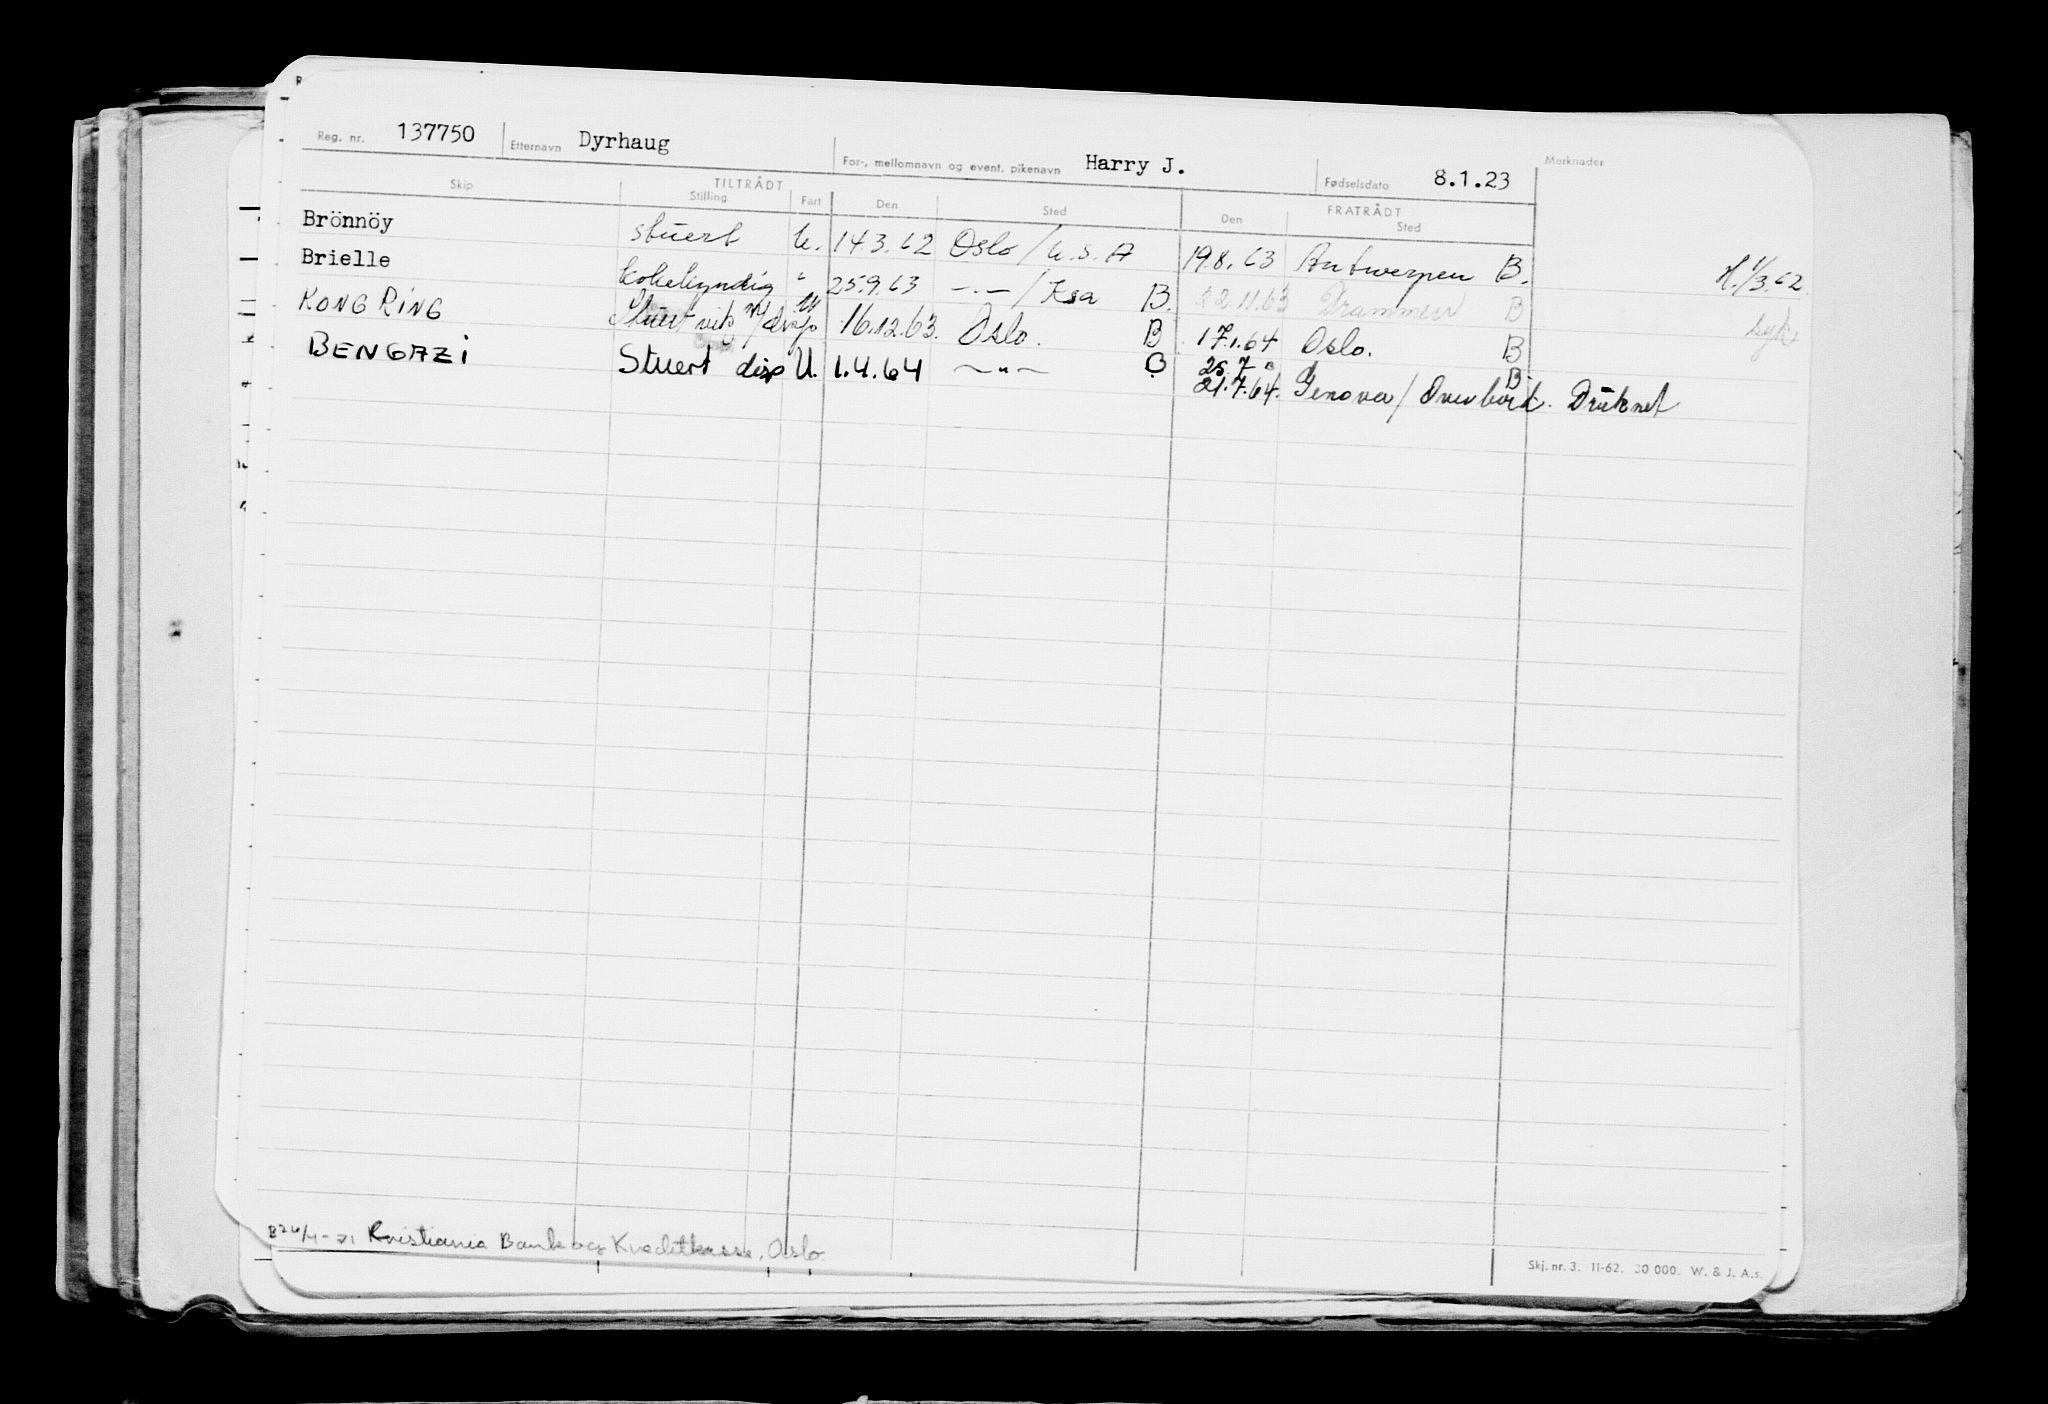 Reg. nr. 137750 Etternavn Dyrhaug For-, mellomnavn og event. pikenavn Harry J. Fødselsdato 8.1.23 Merknader
TILTRÅDT FRATRÅDT
Skip Stilling Fart Den Sted Den Sted
Brönnöy stuert U. 14.3.62 Oslo / U.S.A 19.8.63 Antwerpen B. H. 1/3.62
Brielle kokekyndig " 25.9.63 -.- / B. 22.11.63 Drammen B syk
KONG RING Stuert vik m/ U 16.12.63. Oslo. B 17.1.64 Oslo. B
BENGAZI Stuert disp U. 1.4.64 -"- B 25.7 " B
21.7.64. Genova / Overbord. Druknet
B 26/4-71 Kristiania Bank og Kreditkasse, Oslo
Skj. nr. 3. 11-62. 30 000. W. & J. A.s.